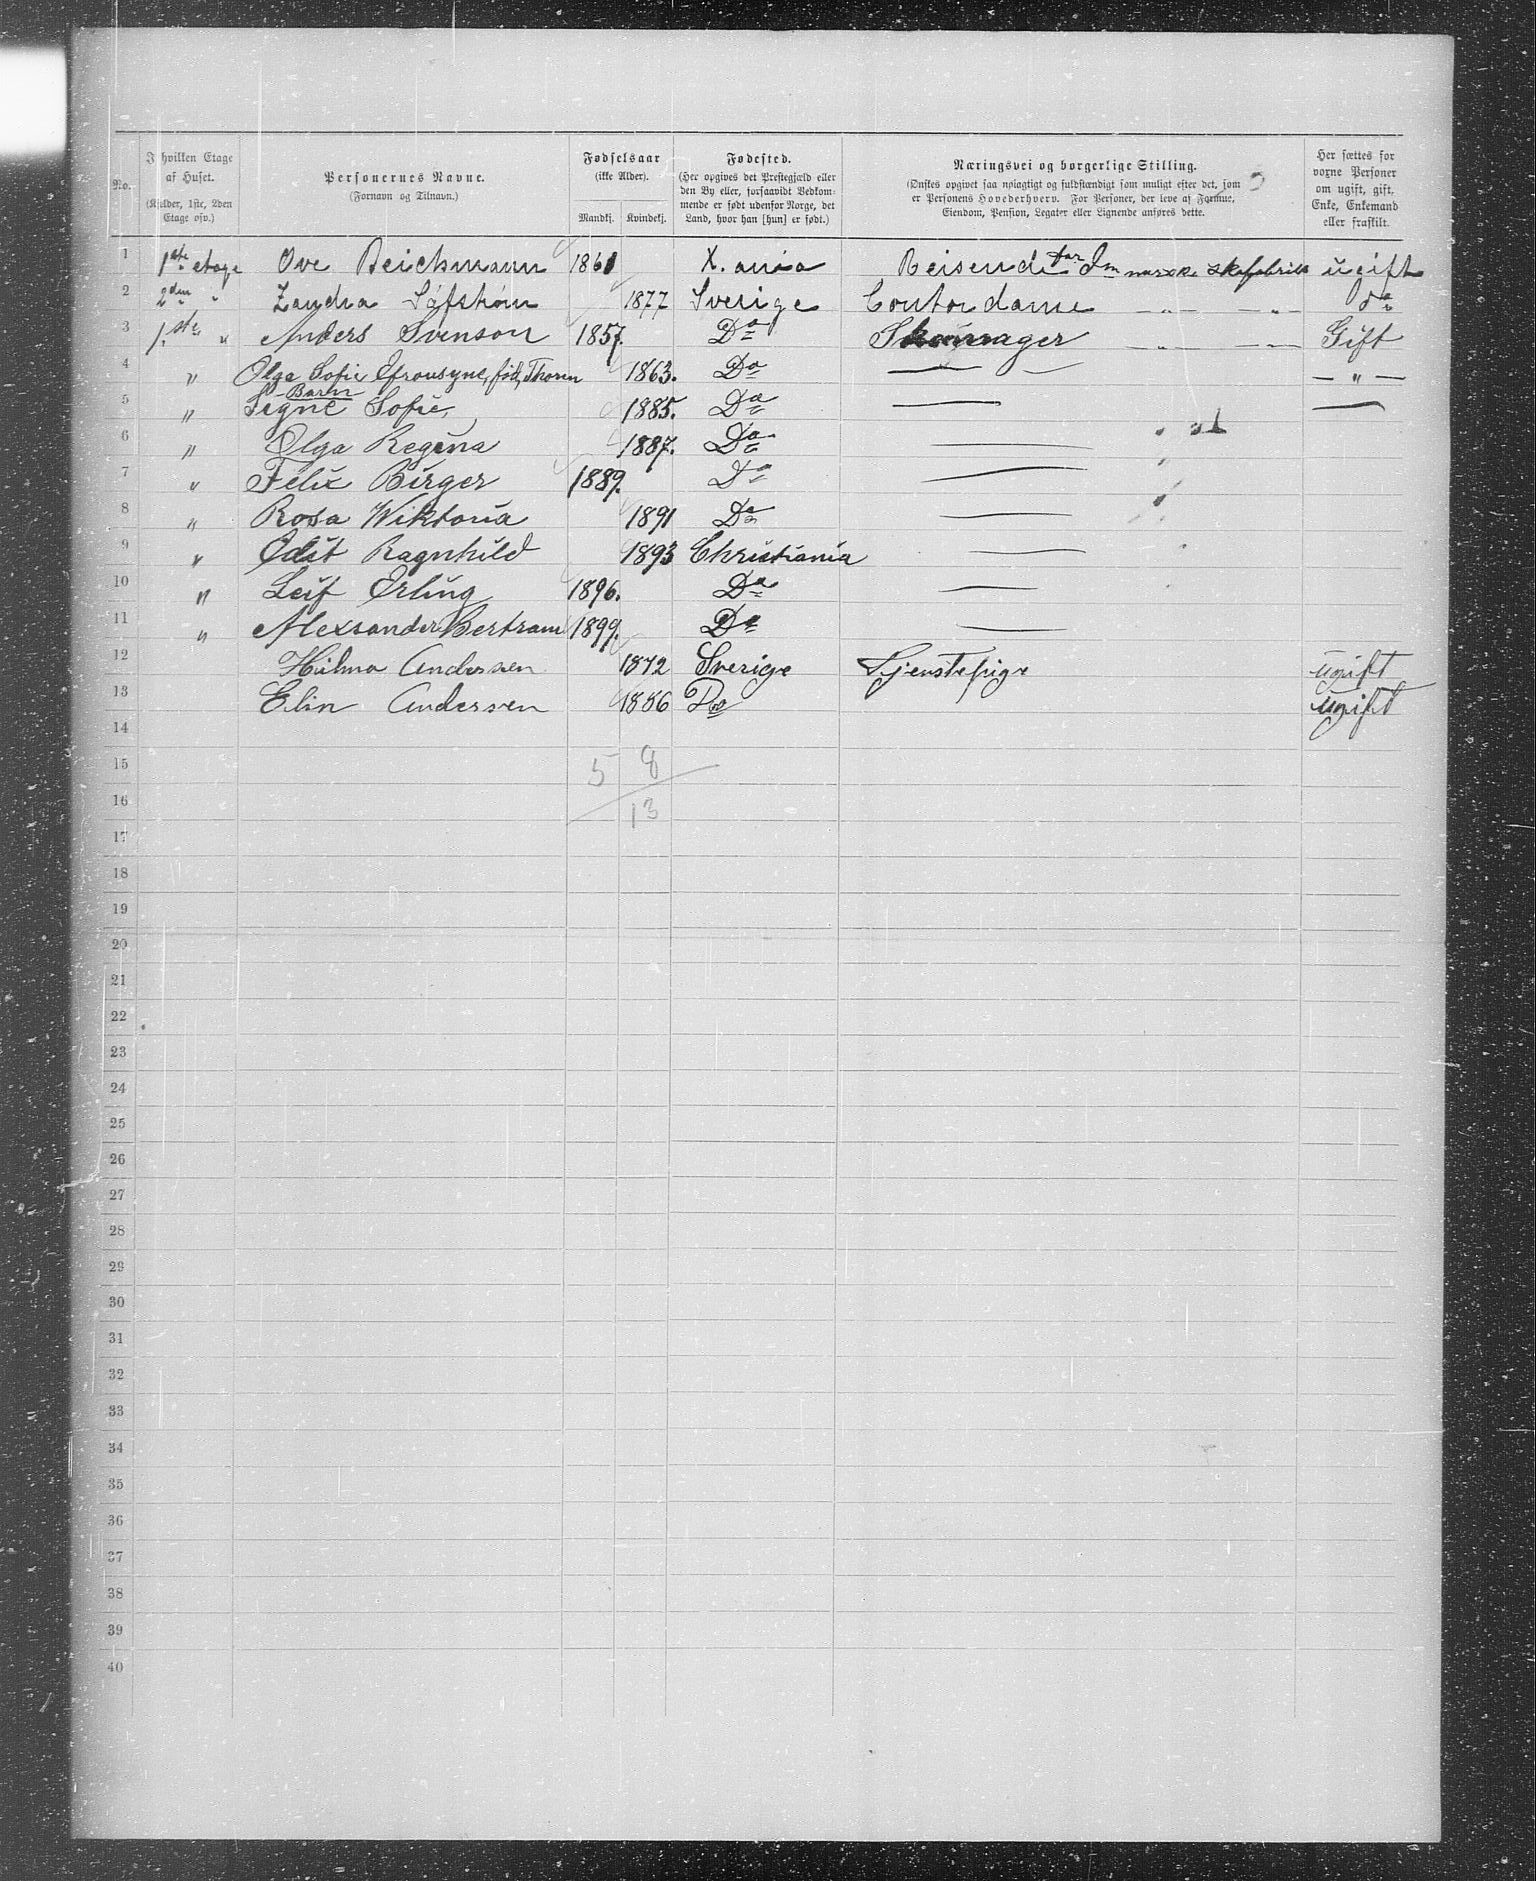 No. | I hvilken Etage af Huset. (Kjelder, 1ste, 2den Etage osv.) | Personernes Navne. (Fornavn og Tilnavn.) | Fødselsaar (ikke Alder). Mandkj. Kvindekj. | Fødested. (Her opgives det Prestegjæld eller den By eller, forsaavidt Vedkommende er født udenfor Norge, det Land, hvor han [hun] er født.) | Næringsvei og borgerlige Stilling. (Ønskes opgivet saa nøiagtigt og fuldstændigt som muligt efter det, som er Personens Hovederhverv. For Personer, der leve af Formue, Eiendom, Pension, Legater eller Lignende anføres dette.) | Her sættes for voxne Personer om ugift, gift, Enke, Enkemand eller fraskilt.
1 1ste etage Ove Beichmann 1861 X.ania Reisende for skofabrik ugift
2 2den " Zandra Söfström 1877 Sverige Contordame — " — — " — do
3 1.ste " Anders Svenson 1857. Do Skomager — " — — " — Gift
4 " Olga Sofie Efrousyne, fød, Thorin 1863. Do — — — " —
Barn
5 " Signe Sofie, 1885. Do — —
6 " Olga Regina 1887. Do —
7 " Felix Birger 1889. Do —
8 " Rosa Wiktoria 1891 Do —
9 " Odit Ragnhild 1893 Christiania —
10 " Leif Erling 1896. Do —
11 " Alexsander Bertram 1899. Do —
12 Hilma Andersen 1872 Sverige Tjenstepige ugift
13 Elin Andersen 1886 Do ugift
14
15 5 8
16 13
17
18
19
20
21
22
23
24
25
26
27
28
29
30
31
32
33
34
35
36
37
38
39
40